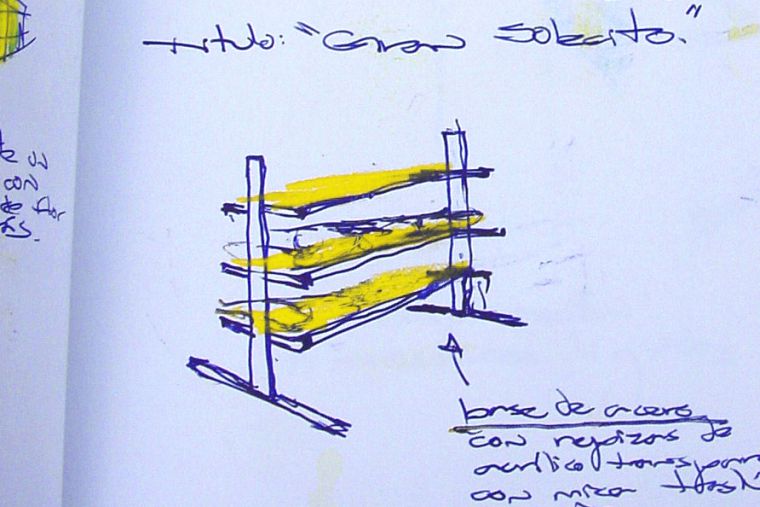 Titulo: "Gran Solecito."
de
con
de flor
base de acero
con repizas de
acrílico transparen
con mica trasl